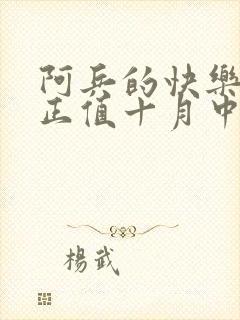 阿兵的快樂
正值十月中
楊武